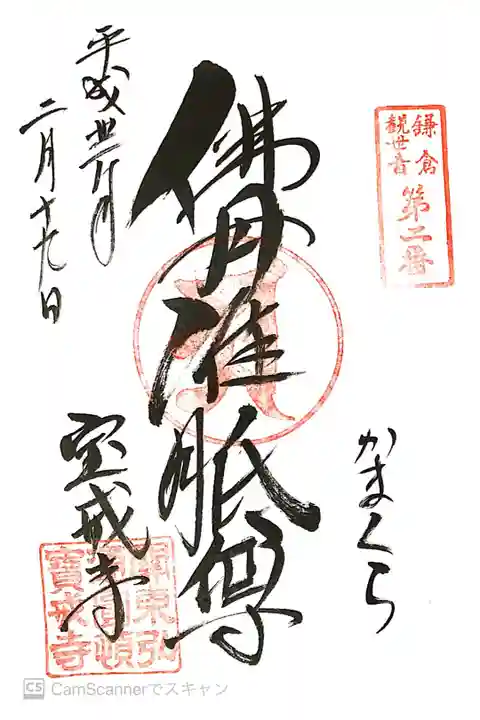 鎌倉
観世音
第二番
かまくら
佛母准胝尊
平成
二月十九日
宝戒寺
關東弘
通圓頓
寶戒寺
CS CamScannerでスキャン